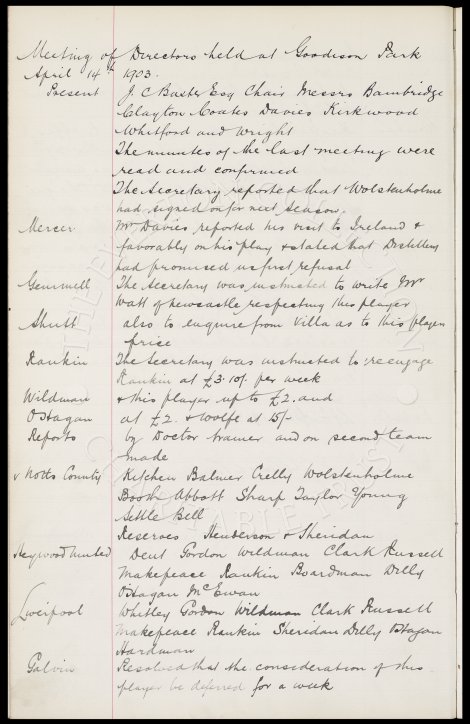 Meeting of Directors held at Goodison Park
April 14th 1903.
Present J. C. Baxter Esq Chair Messrs Bainbridge
Clayton Coates Davies Kirkwood
Whitford and Wright
The minutes of the last meeting were
read and confirmed
The Secretary reported that Wolstenholme
had signed on for next season.
Mercer Mr Davies reported his visit to Ireland &
favorably on his play & stated that Distillery
had promised us first refusal
Gemmell The Secretary was instructed to write Mr
Watt of Newcastle respecting this player
Shutt also to enquire from Villa as to this players
price
Rankin The Secretary was instructed to re engage
Rankin at £3.10/- per week
Wildman & this player up to £2. and
O'Hagan at £2. & Wolfe at 15/-
Reports by Doctor trainer and on second team
made
v Notts County Kitchen Balmer Crelly Wolstenholme
Booth Abbott Sharp Taylor Young
Settle Bell
Reserves Henderson & Sheridan
Heywood United Dent Gordon Wildman Clark Russell
Makepeace Rankin Boardman Dilly
O'Hagan McEwan
Liverpool Whitley Gordon Wildman Clark Russell
Makepeace Rankin Sheridan Dilly O'Hagan
Hardman
Galvin Resolved that the consideration of this
player be deferred for a week